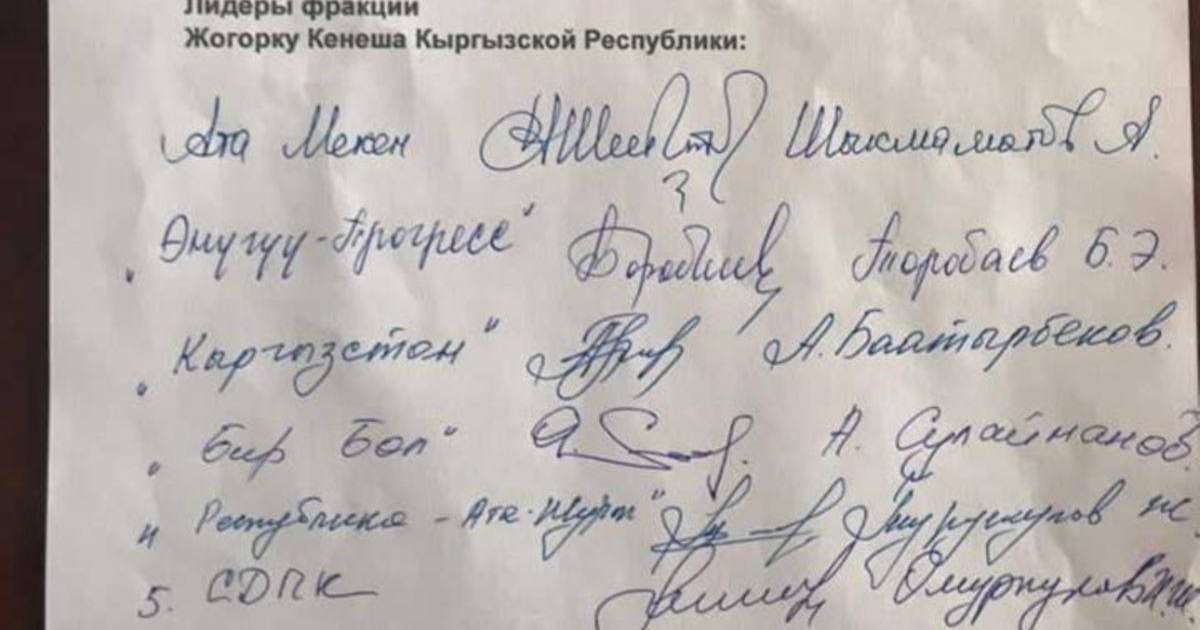 Лидеры фракций
Жогорку Кенеша Кыргызской Республики:
Ата Мекен Шыкмаматов А.
„Өнүгүү-Прогресс“ Торобаев Б. Э.
„Кыргызстан“ А. Баатырбеков.
„Бир Бол“ А. Сулайманов.
„Республика - Ата-Журт“
5. СДПК